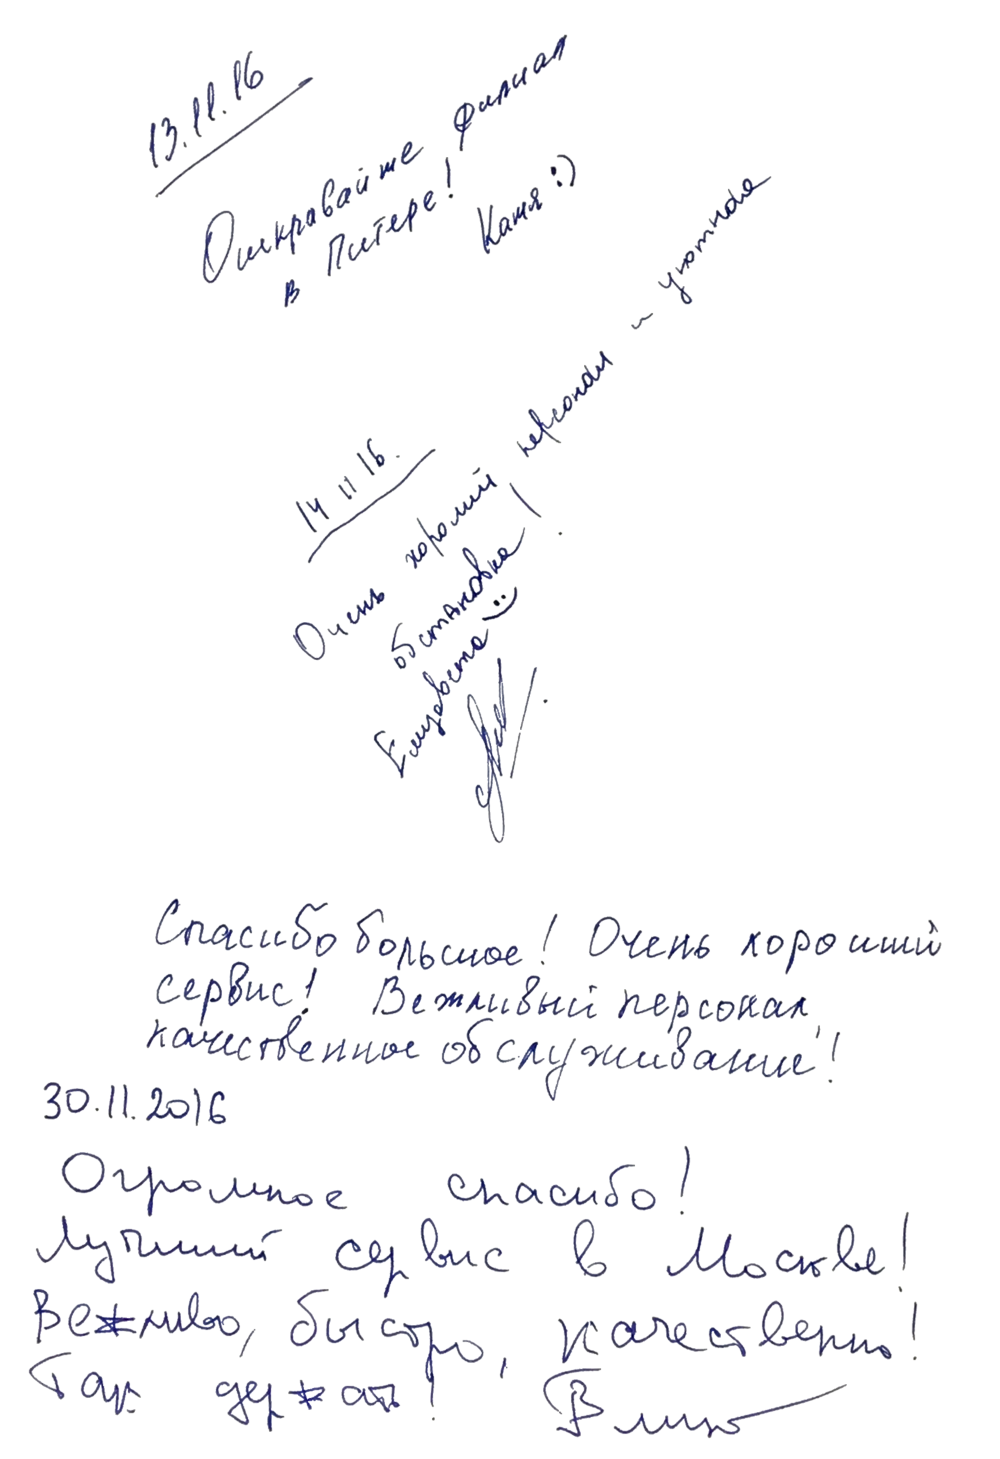 13.11.16
Открывайте филиал
в Питере!
Катя :)
14 11 16.
Очень хороший персонал и уютная
обстановка!
Елизавета :)
Спасибо большое! Очень хороший
сервис! Вежливый персонал,
качественное обслуживание!
30.11.2016
Огромное спасибо!
Лучший сервис в Москве!
Вежливо, быстро, качественно!
Так держать!